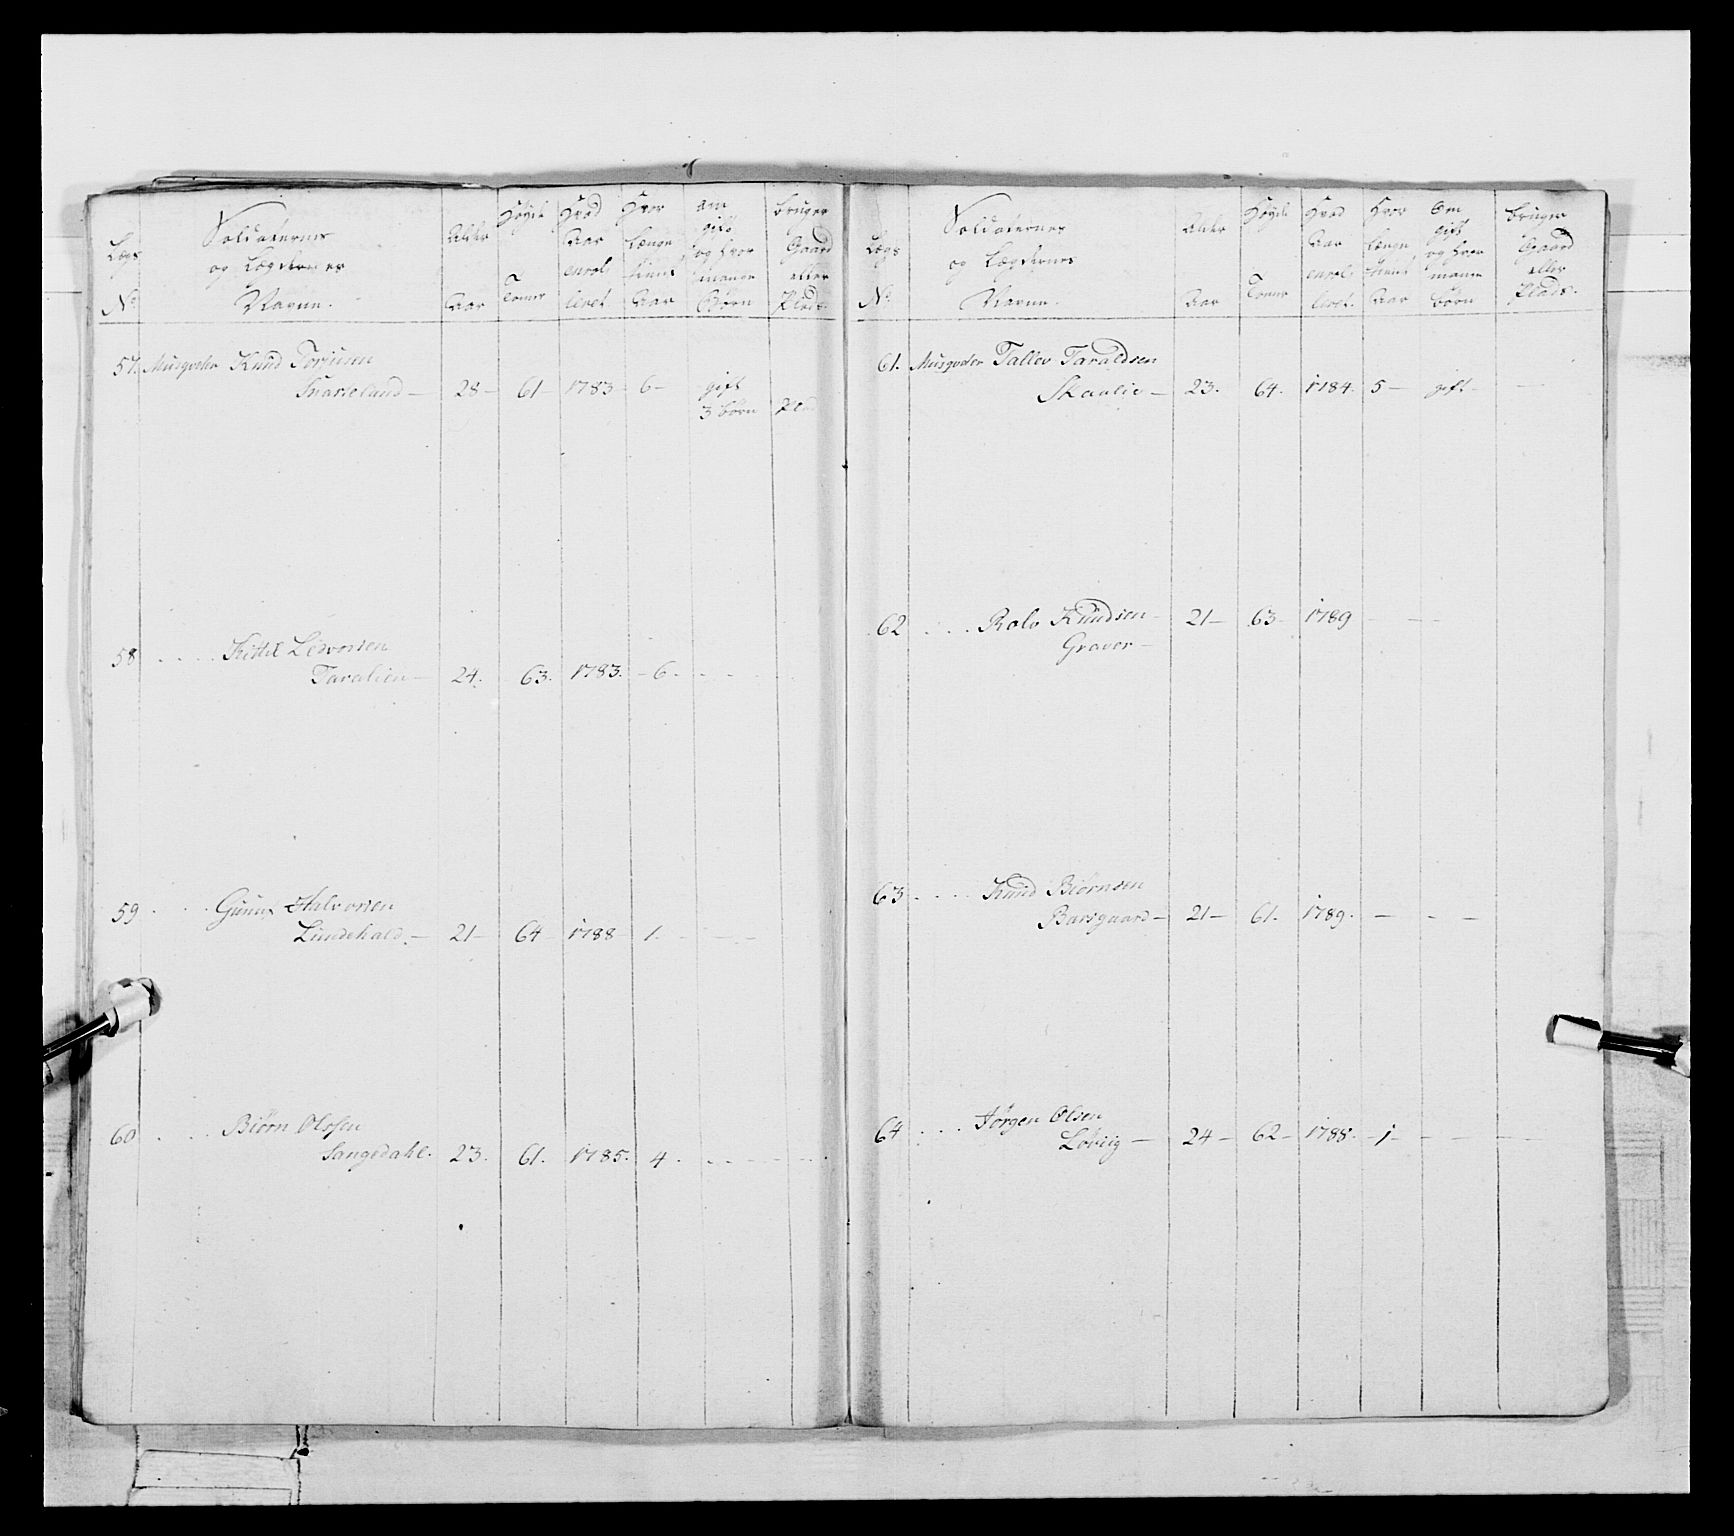 Lægs
No
Soldaternes
og Lægdernes
Navne.
Alder
Aar
Høyde
Tomer
Hvad
Aar
enrol
leret
Hvor
længe
tient
Aar
om
gift
og hvor
mange
Børn
bruger
Gaard
eller
Plads.
57. Musqveter Knud Torjusen
Snarteland — 28 — 61 — 1783 — 6 — gift
3 børn Plad
58 . . . . Kittel Ledvorsen
Taralien — 24. 63. 1783. — 6. — — —
59 . . . Gunuf Halvorsen
Lindekald. — 21 — 64 — 1788 — 1. — — —
60 . . . Biørn Olsen
Langedahl. 23. 61. 1785. 4. — — — —
Lægs
No
Soldaternes
og Lægdernes
Navne.
Alder
Aar
Høyde
Tomer
Hvad
Aar
enrol
leret.
Hvor
længe
tient
Aar
Om
gift
og hvor
mange
børn
bruger
Gaard
eller
Plads.
61. Musqveter Tallev Taraldsen
Skaalie — 23. 64. 1784. 5 — gift — —
62 . . . . Rolv Knudsen — 21 — 63 — 1789 — — —
Graver —
63 . . . . Knud Biørnsen
Barsgaard — 21 — 61. 1789. — — —
64 . . . Jørgen Olsen
Løvig — 24 — 62 — 1788. — 1 — — — —